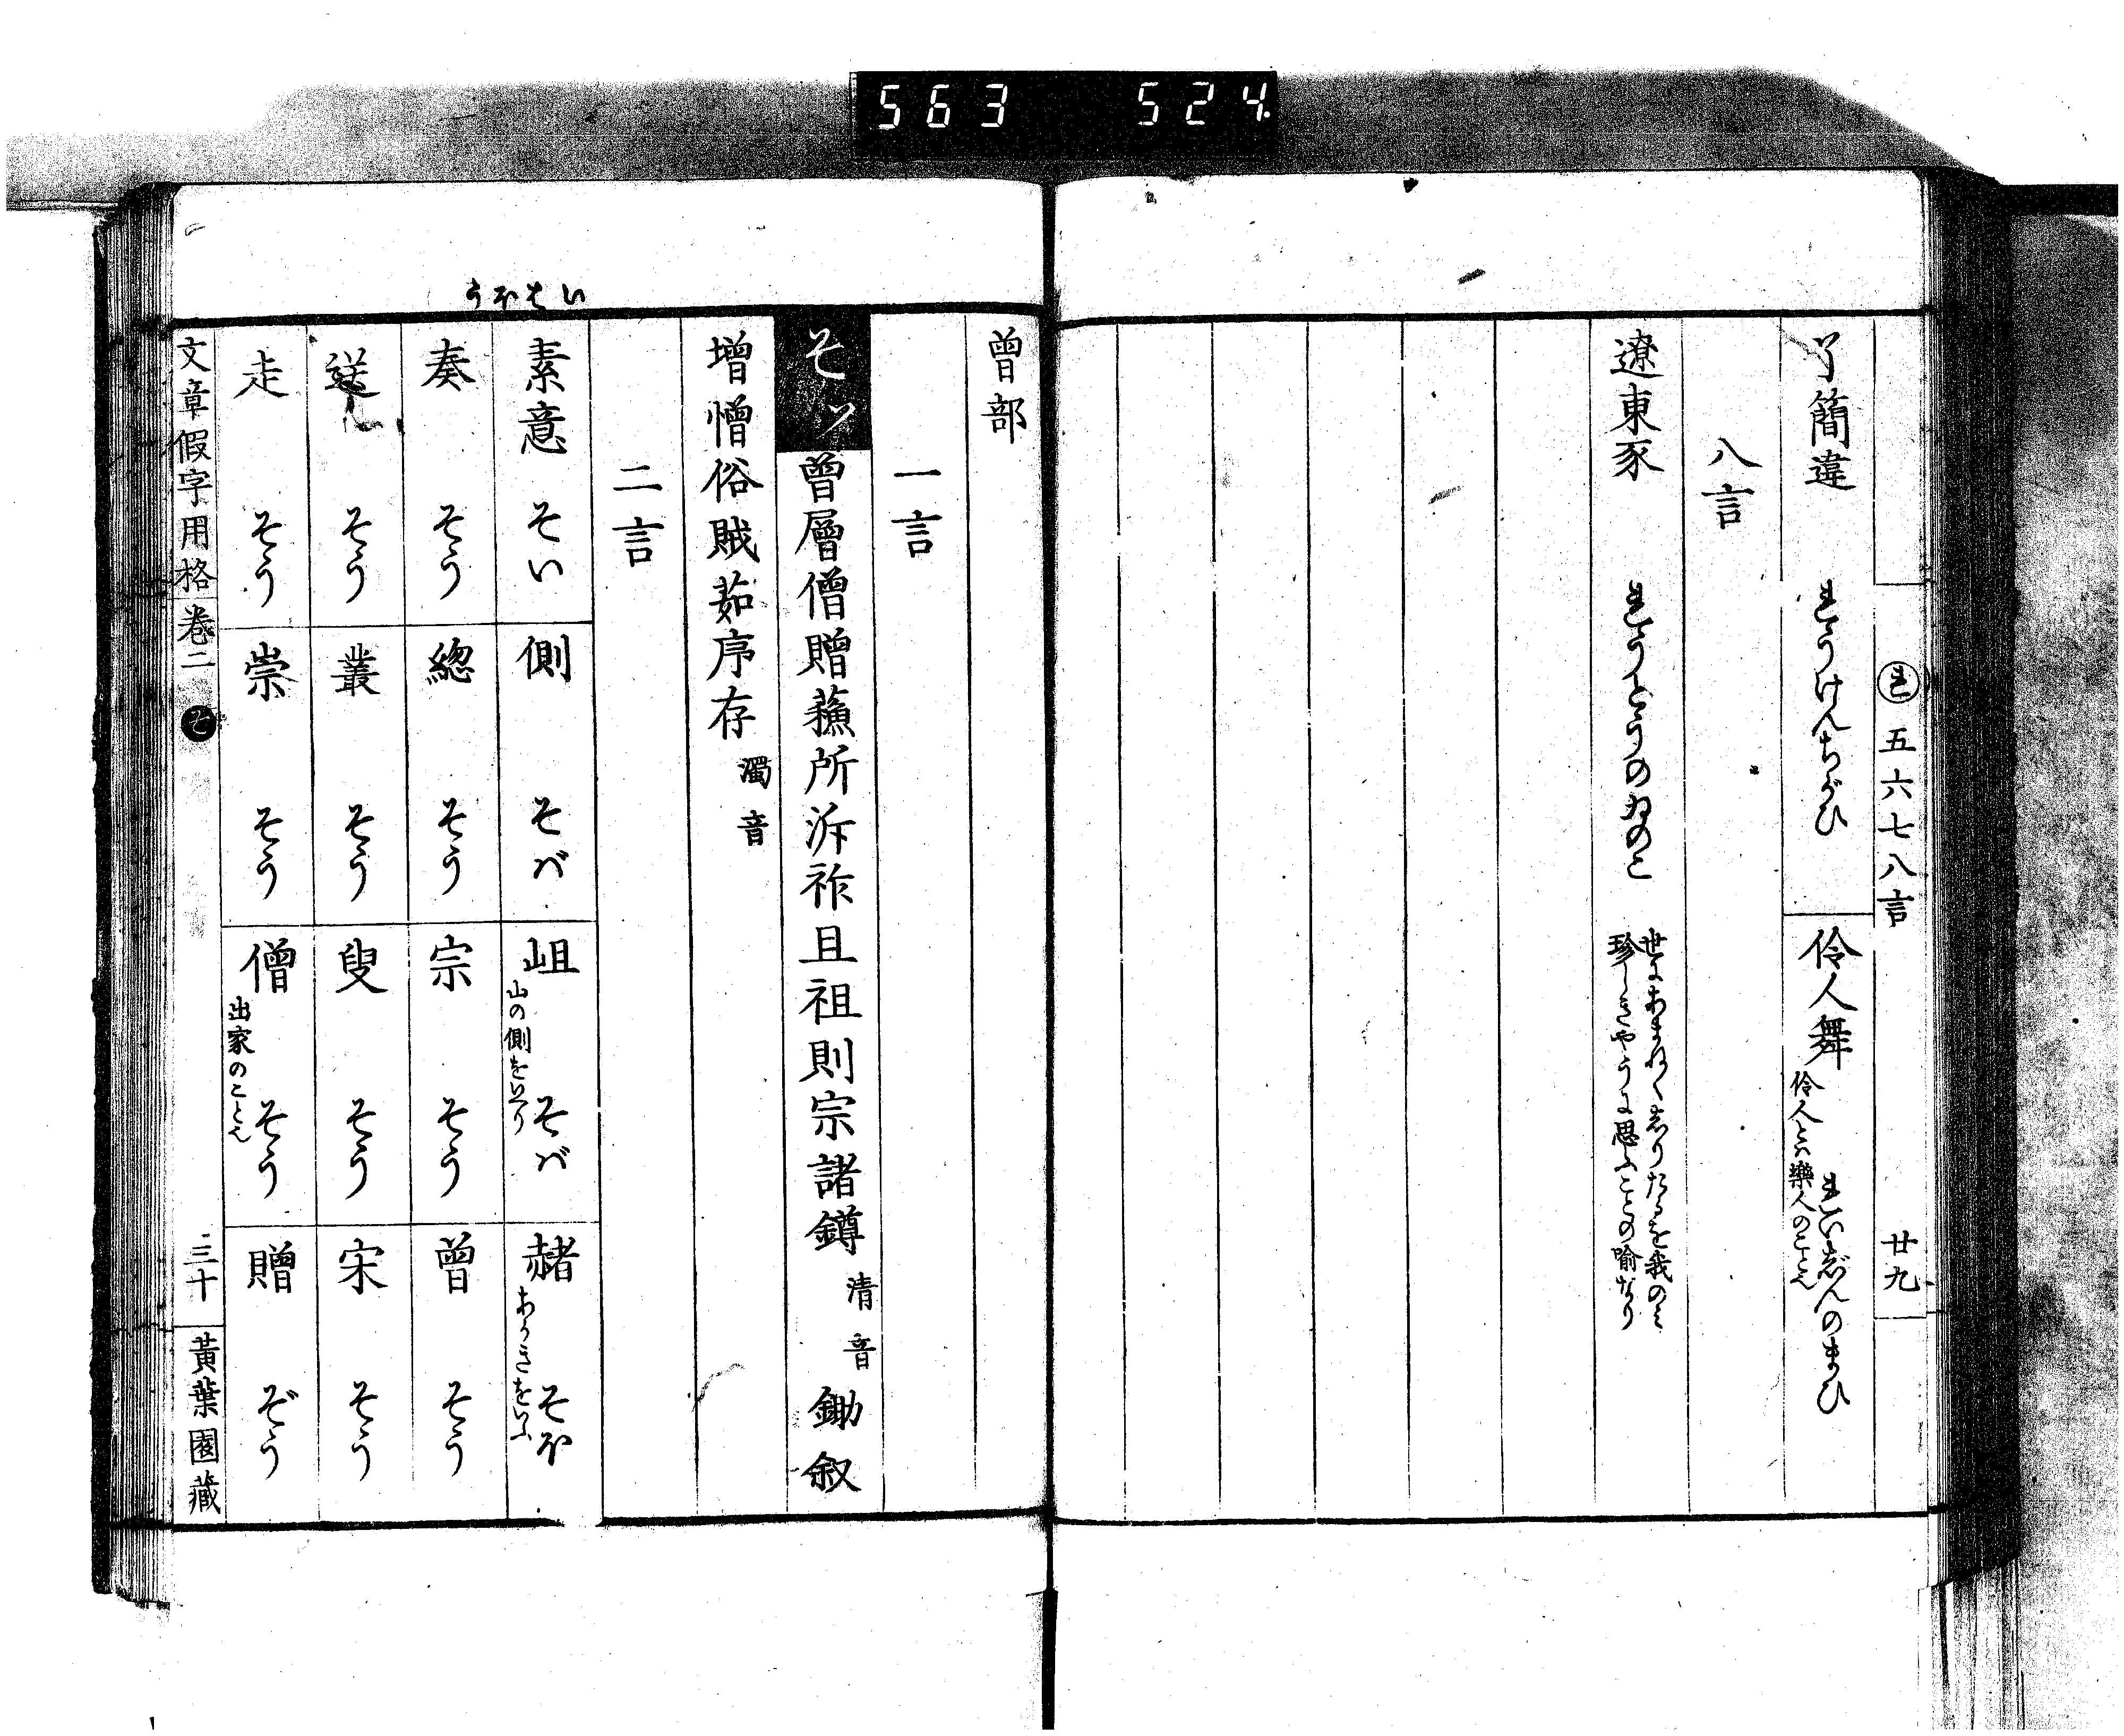 563 524
れ 五六七八言 廿九
了簡違 れうけんちがひ
伶人舞 伶人とハ樂人のこと也 れいじんのまひ
八言
遼東豕 れうとうのゐのこ
世にあまねくしりたるを我のミ
珍しきやうに思ふことの喻なり
曾部
一言
そソ 曾層僧贈蘓所泝祚且祖則宗諸鐏 清音 鋤叙
增憎俗賊茹序存 濁音
二言
いそばほう
素意 そい
側 そバ
岨 山の側をいへり そバ
赭 あかきをいふ そほ
奏 そう
總 そう
宗 そう
曾 そう
送 そう
叢 そう
叟 そう
宋 そう
走 そう
崇 そう
僧 出家のこと也 そう
贈 ぞう
文章假字用格 卷二 そ 三十 黃葉園藏